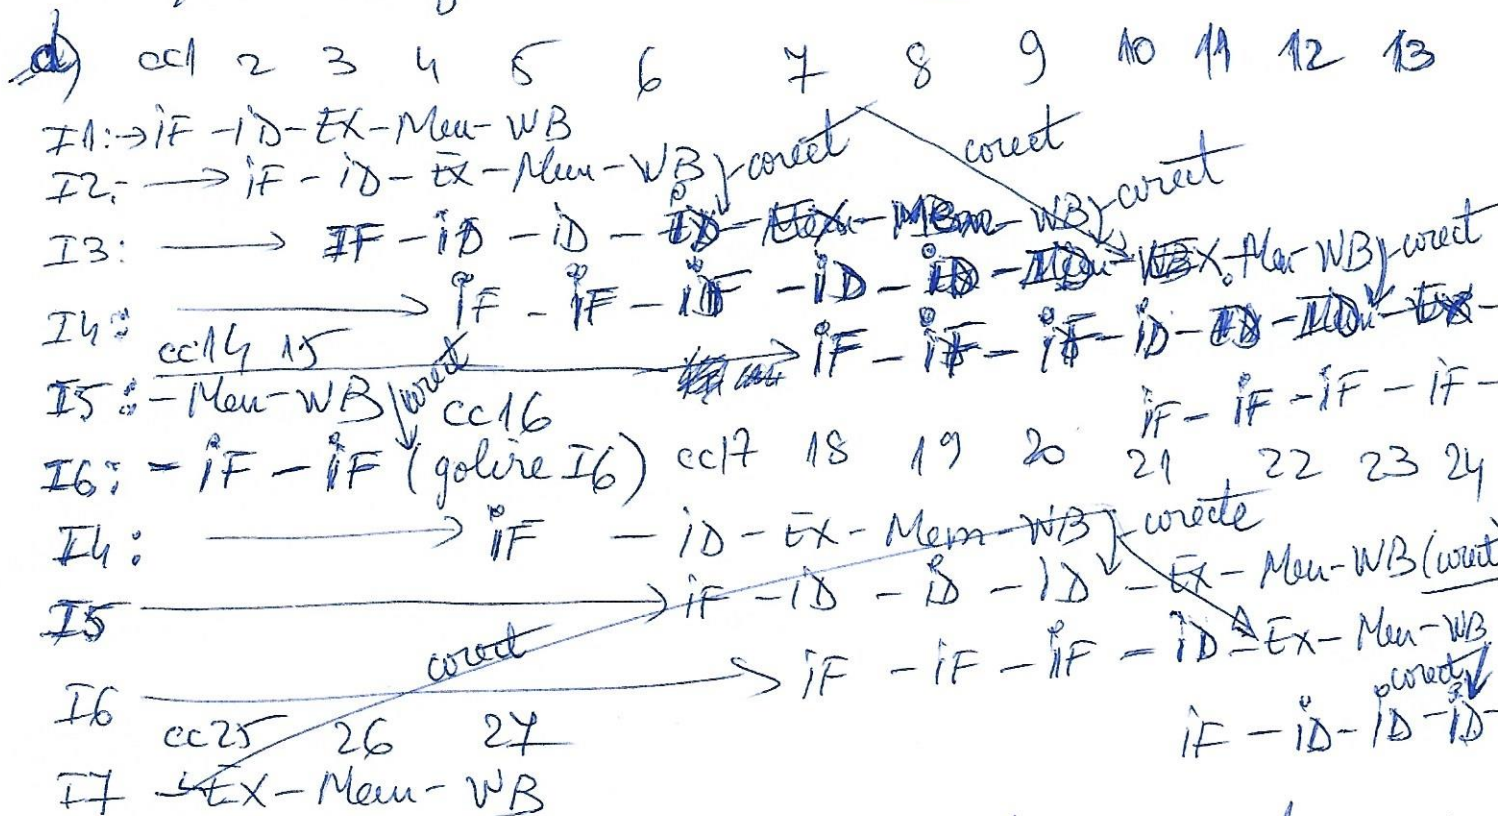 d) cc1 2 3 4 5 6 7 8 9 10 11 12 13
I1: → IF - ID - EX - Mem - WB
I2: → IF - ID - EX - Mem - WB corect corect
I3: → IF - ID - ID - ID - - WB corect
I4: → IF - IF - IF - ID - ID - EX - Mem WB corect
cc14 15 IF - IF - IF - ID -
I5: - Mem - WB corect cc16 IF - IF - IF - IF -
I6: - IF - IF (golire I6) cc17 18 19 20 21 22 23 24
I4: → IF - ID - EX - Mem - WB corecte
I5 → IF - ID - ID - ID - EX - Mem - WB (corect)
I6 → IF - IF - IF - ID - EX - Mem - WB
corect corect
cc25 26 27 IF - ID - ID - ID -
I7 - EX - Mem - WB